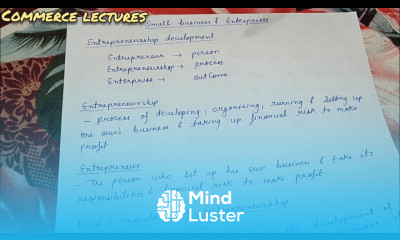 COMMERCE LECTURES
Small business & Enterprises
Entrepreneurship development
Entrepreneur → person
Entrepreneurship → process
Enterprise → outcome
Entrepreneurship
- process of developing, organising, running & setting up
one own's business & taking up financial risk to make
profit.
Entrepreneur
- The person who set up his own business & take its
responsibilities & financial risk to make profit.
Need & Entrepreneurship
the development of
Mind
Luster